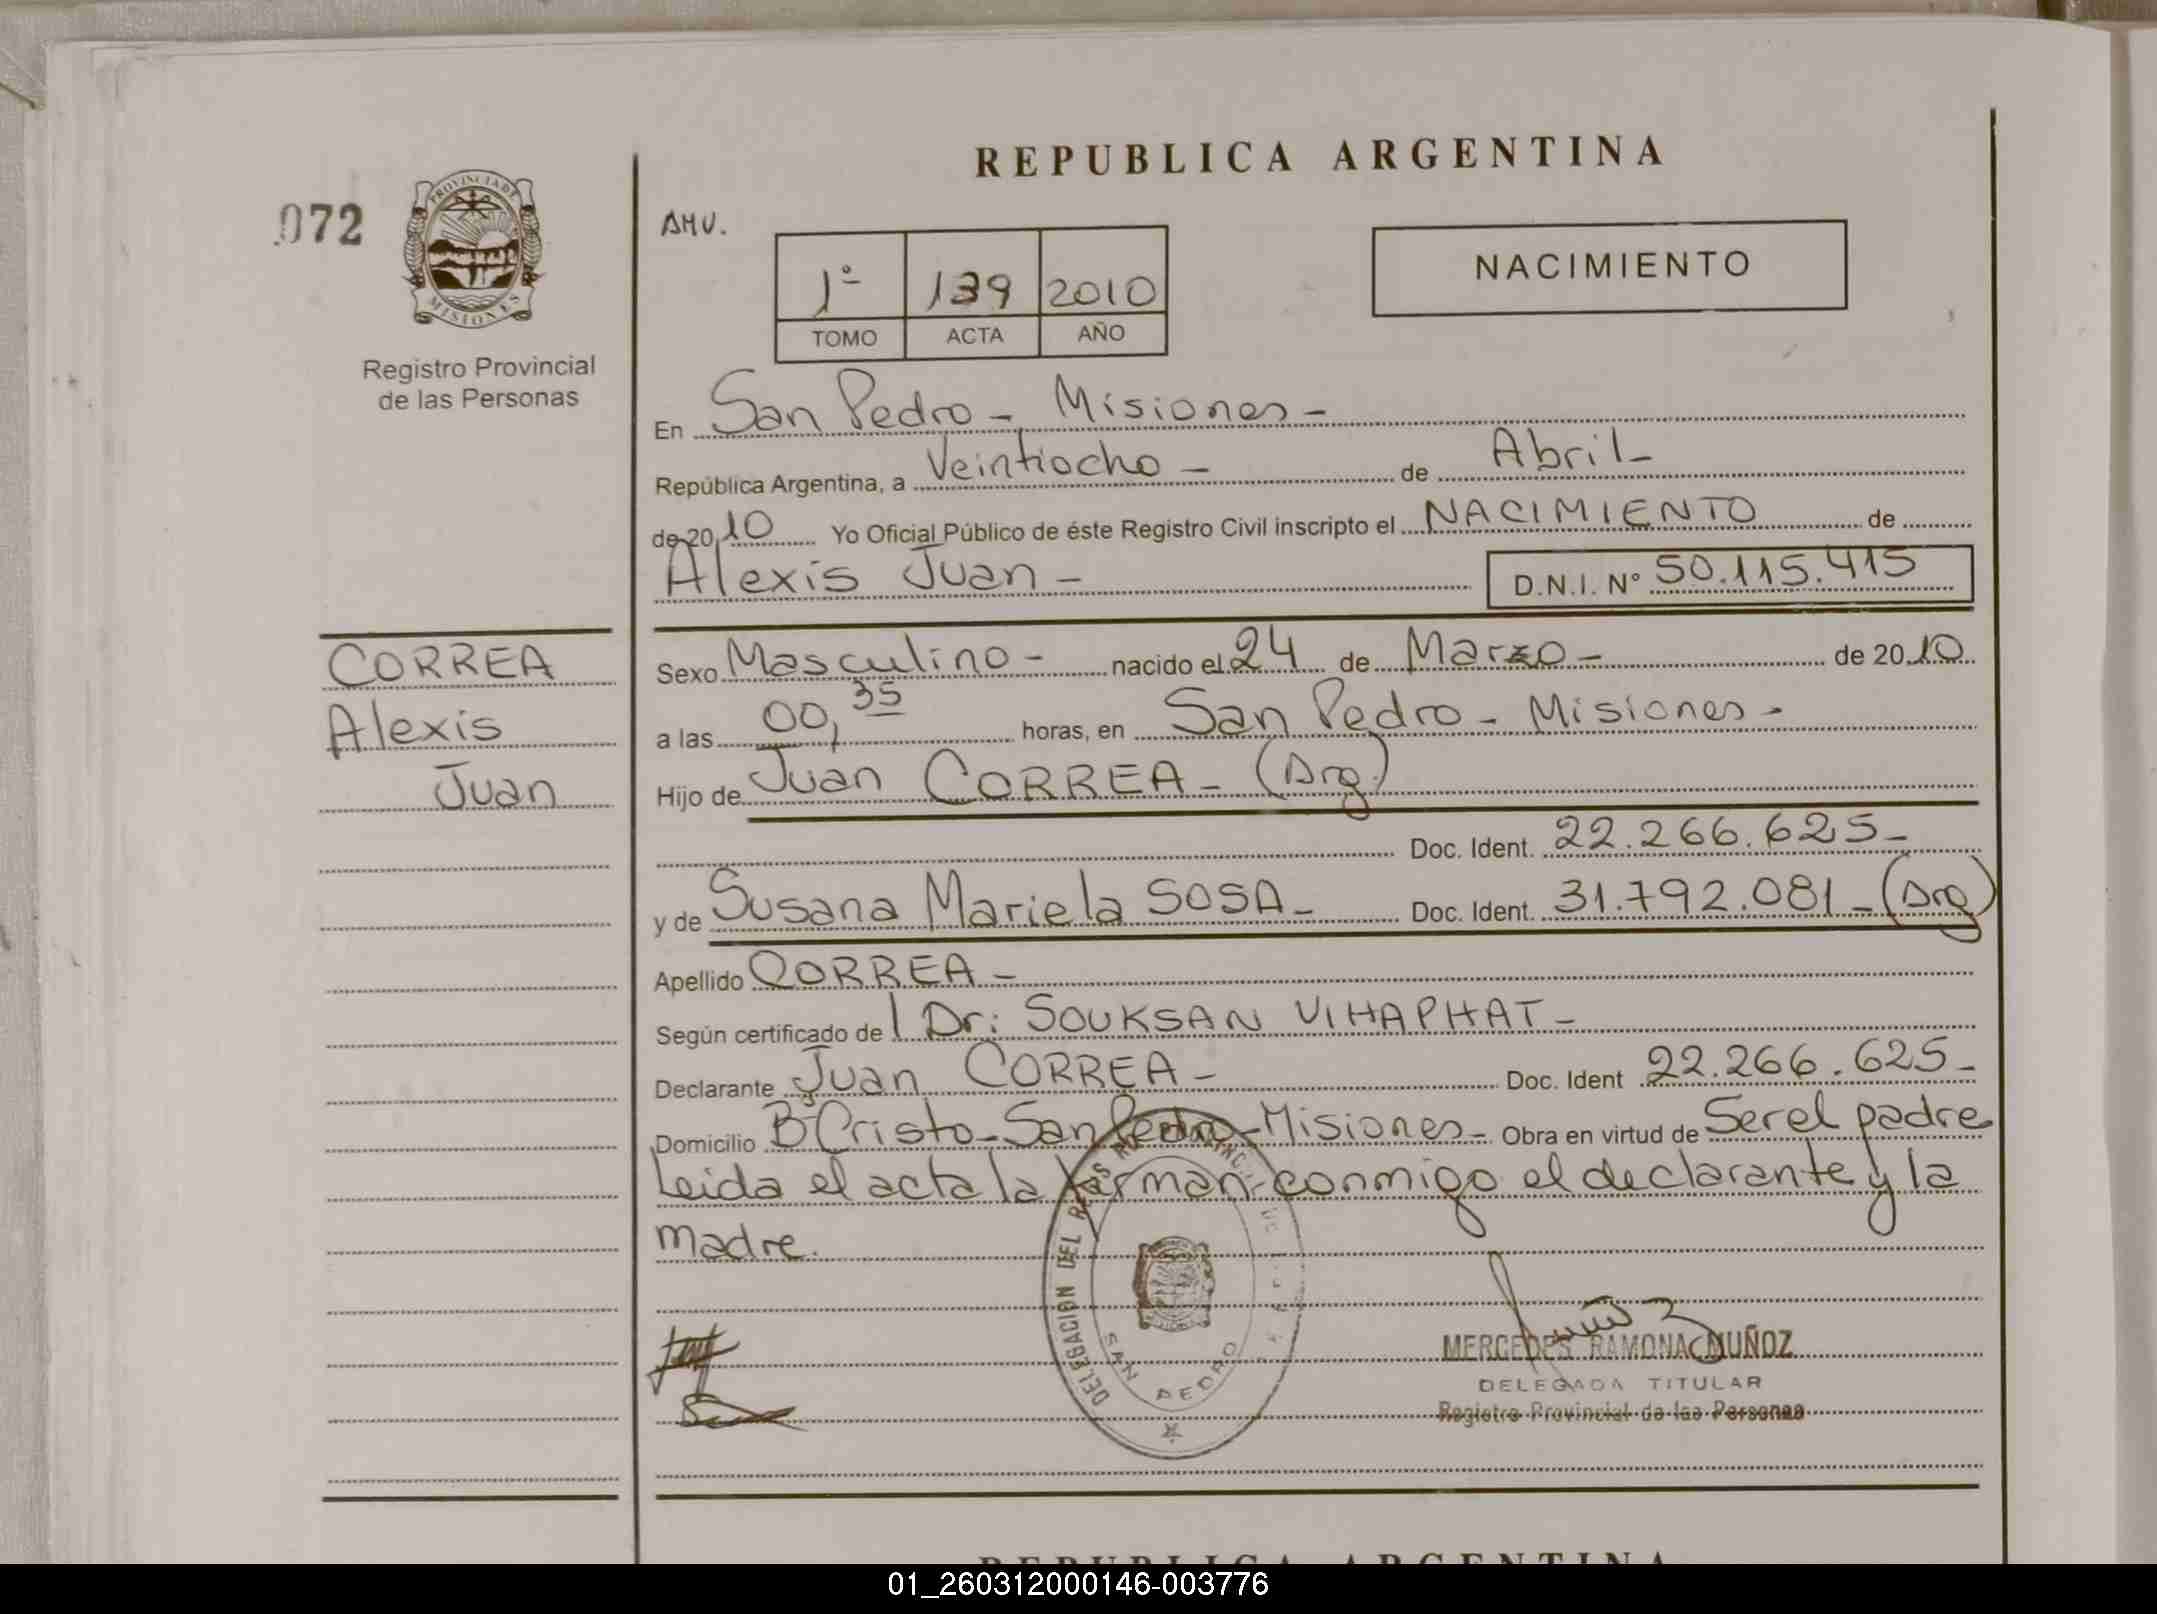 REPUBLICA ARGENTINA
072
PROVINCIA DE
MISIONES
Registro Provincial
de las Personas
AMV.
1º 139 2010
TOMO ACTA AÑO
NACIMIENTO
En San Pedro - Misiones -
República Argentina, a Veintiocho - de Abril -
de 2010 Yo Oficial Público de éste Registro Civil inscripto el NACIMIENTO de
Alexis Juan - D.N.I. Nº 50.115.415
CORREA
Alexis
Juan
Sexo Masculino - nacido el 24 de Marzo - de 2010
a las 00,35 horas, en San Pedro - Misiones -
Hijo de Juan CORREA - (Arg.)
Doc. Ident. 22.266.625 -
y de Susana Mariela SOSA - Doc. Ident. 31.792.081 - (Arg)
Apellido CORREA -
Según certificado de Dr: SOUKSAN VIHAPHAT -
Declarante Juan CORREA - Doc. Ident 22.266.625 -
Domicilio Bº Cristo - San Pedro - Misiones - Obra en virtud de Ser el padre
Leida el acta la firman conmigo el declarante y la
madre.
DELEGACION DEL
SAN PEDRO
MERCEDES RAMONA MUÑOZ
DELEGADA TITULAR
Registro Provincial de las Personas
REPUBLICA ARGENTINA
01_260312000146-003776